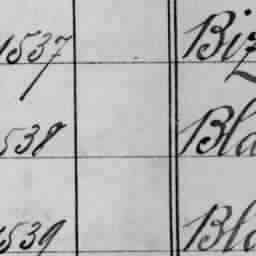 1537 Biz
538 Bla
1539 Bla